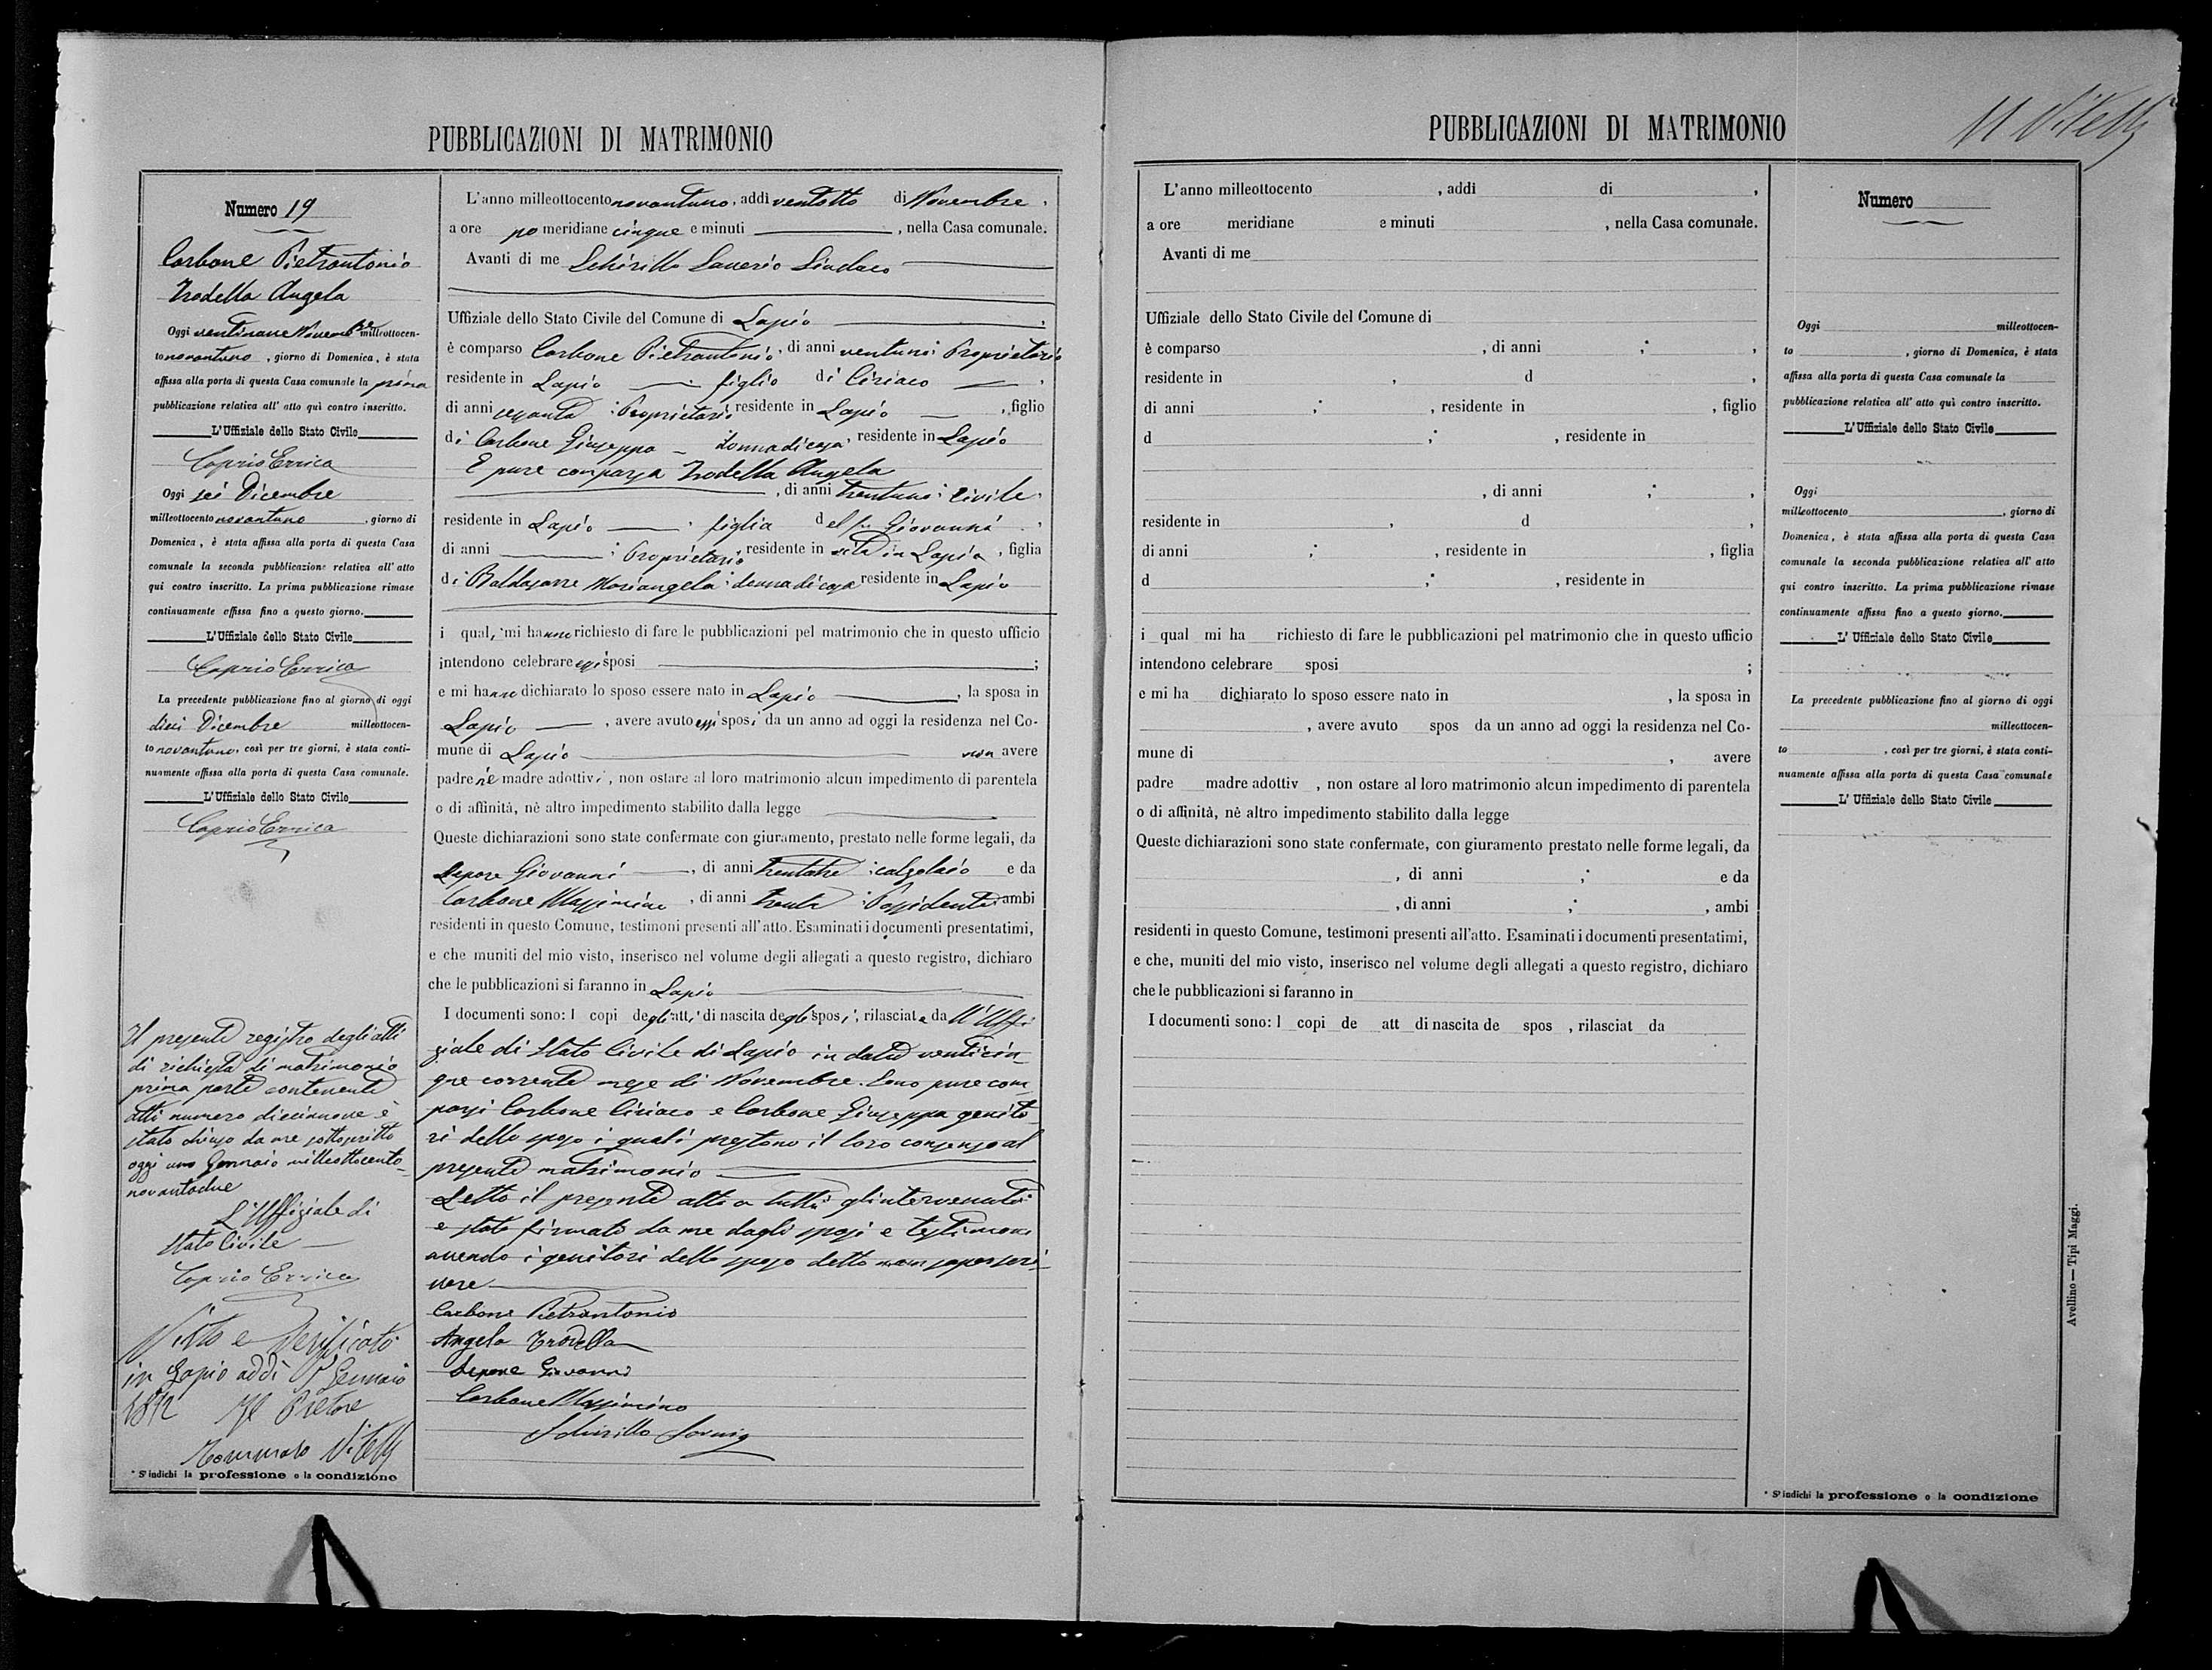 PUBBLICAZIONI DI MATRIMONIO
Numero 19
Carbone Pietrantonio
Trodella Angela
Oggi ventinove Novembre milleottocen-
to novantuno, giorno di Domenica, è stata
affissa alla porta di questa Casa comunale la prima
pubblicazione relativa all'atto quì contro inscritto.
L'Uffiziale dello Stato Civile
Caprio Errico
Oggi sei Dicembre
milleottocento novantuno, giorno di
Domenica, è stata affissa alla porta di questa Casa
comunale la seconda pubblicazione relativa all'atto
qui contro inscritto. La prima pubblicazione rimase
continuamente affissa fino a questo giorno.
L'Uffiziale dello Stato Civile
Caprio Errico
La precedente pubblicazione fino al giorno di oggi
dieci Dicembre milleottocen-
to novantuno, così per tre giorni, è stata conti-
nuamente affissa alla porta di questa Casa comunale.
L'Uffiziale dello Stato Civile
Caprio Errico
Il presente registro degli atti
di richiesta di matrimonio
prima parte contenente
atti numero diecinnove è
stato chiuso da me sottoscritto
oggi uno Gennaio milleottocento-
novantadue
L'Uffiziale di
Stato Civile
Caprio Errico
Visto e Verificato
in Lapio addì Gennaio
1892 Il Pretore
Tommaso Vitelli
* S'indichi la professione o la condizione
L'anno milleottocento novantuno, addì ventotto di Novembre,
a ore po meridiane cinque e minuti , nella Casa comunale.
Avanti di me Schirillo Saverio Sindaco
Uffiziale dello Stato Civile del Comune di Lapio
è comparso Carbone Pietrantonio, di anni ventuni; Proprietario
residente in Lapio, figlio di Ciriaco,
di anni sessanta; Proprietario residente in Lapio, figlio
di Carbone Giuseppa donna di casa, residente in Lapio
E pure comparsa Trodella Angela
, di anni trentuno; Civile,
residente in Lapio, figlia del fu Giovanni,
di anni ; Proprietario, residente in vita in Lapio, figlia
di Baldassarre Mariangela; donna di casa residente in Lapio
i quali mi hanno richiesto di fare le pubblicazioni pel matrimonio che in questo ufficio
intendono celebrare essi sposi ;
e mi hanno dichiarato lo sposo essere nato in Lapio , la sposa in
Lapio , avere avuto essi sposi da un anno ad oggi la residenza nel Co-
mune di Lapio non avere
padre nè madre adottivi, non ostare al loro matrimonio alcun impedimento di parentela
o di affinità, nè altro impedimento stabilito dalla legge
Queste dichiarazioni sono state confermate con giuramento, prestato nelle forme legali, da
Lepore Giovanni , di anni trentatre; calzolaio e da
Carbone Massimino, di anni trenta; Possidente, ambi
residenti in questo Comune, testimoni presenti all'atto. Esaminati i documenti presentatimi,
e che muniti del mio visto, inserisco nel volume degli allegati a questo registro, dichiaro
che le pubblicazioni si faranno in Lapio
I documenti sono: l copi degli atti di nascita degli sposi, rilasciate da ll'Uffi
ziale di Stato Civile di Lapio in data venticin-
que corrente mese di Novembre. Sono pure com
parsi Carbone Ciriaco e Carbone Giuseppa genito
ri dello sposo i quali prestono il loro consenso al
presente matrimonio
Letto il presente atto a tutti gl'intervenuti
e stato firmato da me dagli sposi e testimoni
avendo i genitori dello sposo detto non saper scri-
vere
Carbone Pietrantonio
Angela Trodella
Lepore Giovanni
Carbone Massimino
Schirillo
PUBBLICAZIONI DI MATRIMONIO
Vitelli
L'anno milleottocento , addì di ,
a ore meridiane e minuti , nella Casa comunale.
Avanti di me
Uffiziale dello Stato Civile del Comune di
è comparso , di anni ; ,
residente in , d ,
di anni ; , residente in , figlio
d ; , residente in
, di anni ; ,
residente in , d ,
di anni ; , residente in , figlia
d ; , residente in
i qual mi ha richiesto di fare le pubblicazioni pel matrimonio che in questo ufficio
intendono celebrare sposi ;
e mi ha dichiarato lo sposo essere nato in , la sposa in
, avere avuto spos da un anno ad oggi la residenza nel Co-
mune di , avere
padre madre adottiv , non ostare al loro matrimonio alcun impedimento di parentela
o di affinità, nè altro impedimento stabilito dalla legge
Queste dichiarazioni sono state confermate, con giuramento prestato nelle forme legali, da
, di anni ; e da
, di anni ; , ambi
residenti in questo Comune, testimoni presenti all'atto. Esaminati i documenti presentatimi,
e che, muniti del mio visto, inserisco nel volume degli allegati a questo registro, dichiaro
che le pubblicazioni si faranno in
I documenti sono: l copi de att di nascita de spos , rilasciat da
Numero
Oggi milleottocen-
to , giorno di Domenica, è stata
affissa alla porta di questa Casa comunale la
pubblicazione relativa all'atto quì contro inscritto.
L'Uffiziale dello Stato Civile
Oggi
milleottocento , giorno di
Domenica, è stata affissa alla porta di questa Casa
comunale la seconda pubblicazione relativa all'atto
qui contro inscritto. La prima pubblicazione rimase
continuamente affissa fino a questo giorno.
L'Uffiziale dello Stato Civile
La precedente pubblicazione fino al giorno di oggi
milleottocen-
to , così per tre giorni, è stata conti-
nuamente affissa alla porta di questa Casa comunale
L'Uffiziale dello Stato Civile
* S'indichi la professione o la condizione
Avellino — Tipi Maggi.